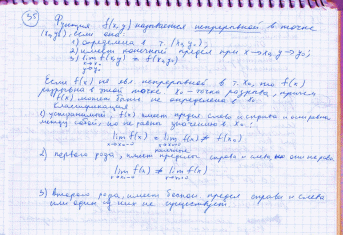 35
Функция f(x,y) называется непрерывной в точке
(x₀,y₀), если она:
1) определена в т. (x₀,y₀);
2) имеет конечный предел при x→x₀ y→y₀;
3) lim f(x,y) = f(x₀,y₀)
x→x₀
y→y₀
Если f(x) не явл непрерывной в т. x₀, то f(x)
разрывна в этой точке x₀ - точка разрыва, причем
f(x) может быть не определена в x₀.
Классификация
1) устранимый, f(x) имеет предел слева и справа и они равны
между собой, но не равны значению в x₀:
lim f(x) = lim f(x) ≠ f(x₀)
2) первого рода, имеет пределы справа и слева, но они не равны
lim f(x) ≠ lim f(x)
3) второго рода, имеет бескон предел справа и слева
или один из них не существует